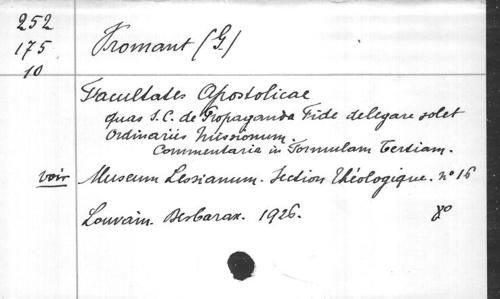 252
175
10
Fromant (G)
Facultates Apostolicae
quas S.C. de Propaganda Fide delegare solet
Ordinariis Missionum.
Commentaria in Formulam Tertiam.
voir Museum Lessianum. Section Théologique. nº 16
Louvain. Desbarax. 1926. 8º